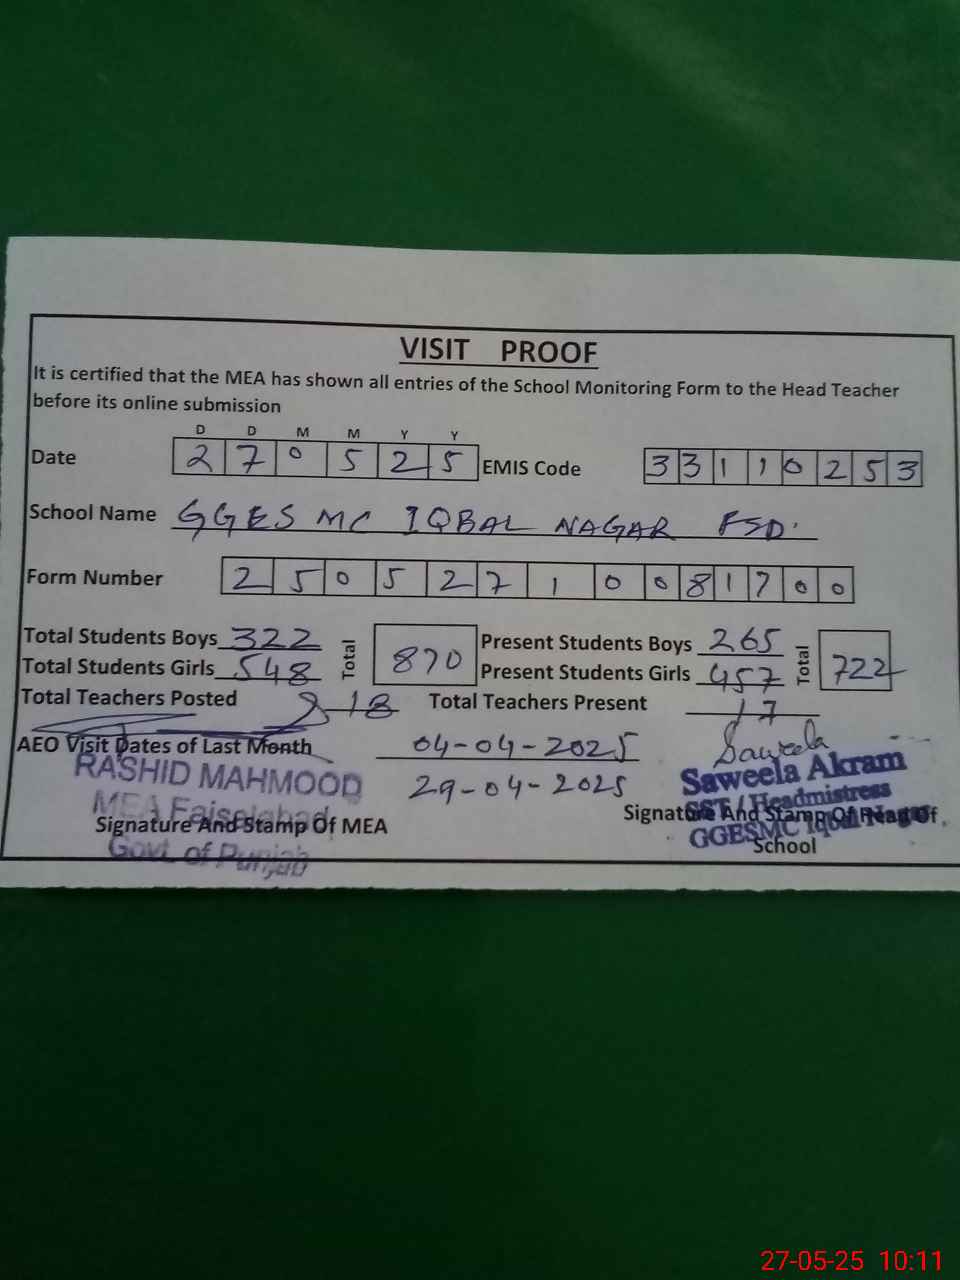 VISIT PROOF
It is certified that the MEA has shown all entries of the School Monitoring Form to the Head Teacher
before its online submission
D D M M Y Y
Date 2 7 0 5 2 5 EMIS Code 3 3 1 1 0 2 5 3
School Name GGES MC IQBAL NAGAR FSD.
Form Number 2 5 0 5 2 7 1 0 0 8 1 7 0 0
Total Students Boys 322 Total 870 Present Students Boys 265 Total 722
Total Students Girls 548 Present Students Girls 457
Total Teachers Posted 18 Total Teachers Present 17
AEO Visit Dates of Last Month 04-04-2025 Saweela
RASHID MAHMOOD 29-04-2025 Saweela Akram
MEA Faisalabad SST / Headmistress
Signature And Stamp Of MEA Signature And Stamp Of Head Of
Govt. of Punjab GGESMC Iqbal Nagar
School
27-05-25 10:11